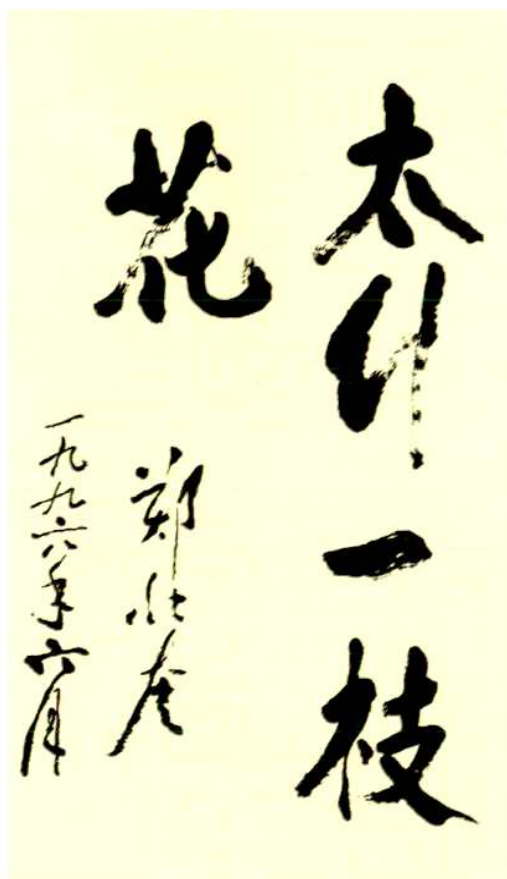 太行一枝
花
郑社奎
一九九六年六月